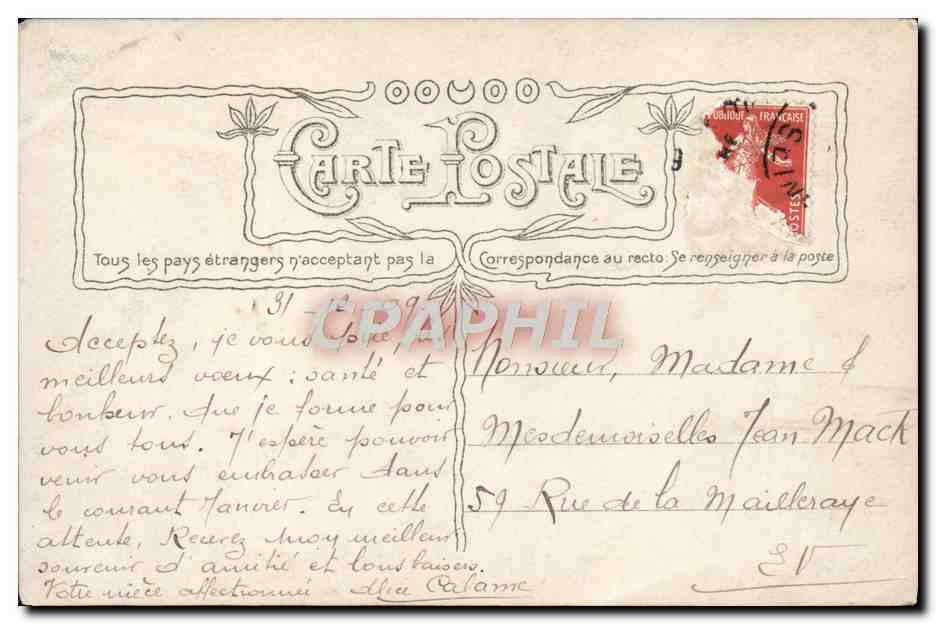 CARTE POSTALE
Tous les pays étrangers n'acceptant pas la Correspondance au recto: Se renseigner à la poste
UBLIQUE FRANÇAISE
POSTES
CPAPHIL
31
Acceptez, je vous prie,
meilleurs vœux : santé et
bonheur. Que je forme pour
vous tous. J'espère pouvoir
venir vous embrasser dans
le courant Janvier. En cette
attente, Recevez mon meilleur
souvenir d'amitié et bons baisers.
Votre nièce affectionnée Alice Calame
Monsieur, Madame &
Mesdemoiselles Jean Mack
59 Rue de la Mailleraye
EV